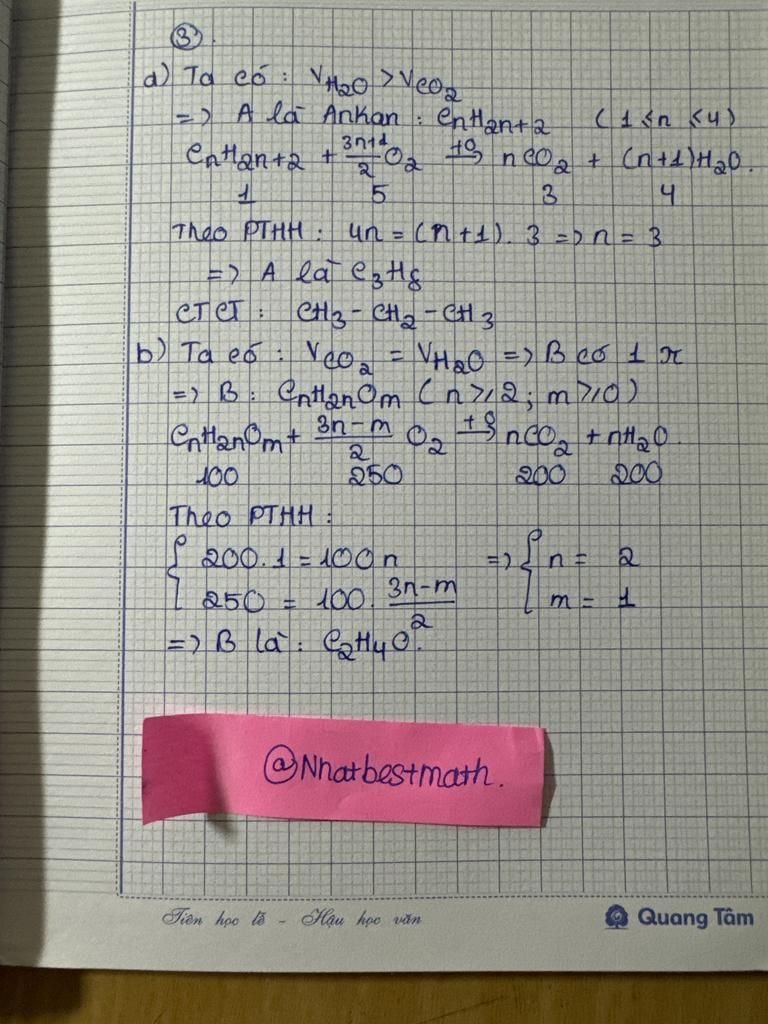 ③.
a) Ta có : VH2O > VCO2
=> A là Ankan : CnH2n+2 ( 1 ≤ n ≤ 4)
CnH2n+2 + 3n+1/2 O2 +t0→ nCO2 + (n+1)H2O.
1 5 3 4
Theo PTHH : 4n = (n+1). 3 => n = 3
=> A là C3H8
CTCT : CH3 - CH2 - CH3
b) Ta có : VCO2 = VH2O => B có 1 π
=> B : CnH2nOm ( n ≥ 2 ; m ≥ 0 )
CnH2nOm + 3n-m/2 O2 +t0→ nCO2 + nH2O.
100 250 200 200
Theo PTHH :
{ 200.1 = 100n => { n = 2
250 = 100. 3n-m/2 m = 1
=> B là : C2H4O.
@Nhatbestmath.
Tiên học lễ - Hậu học văn
Quang Tâm